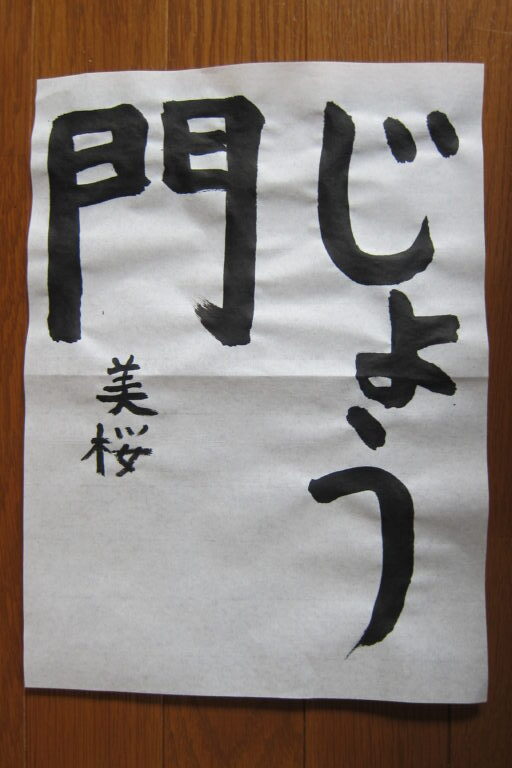 じょう
門
美桜